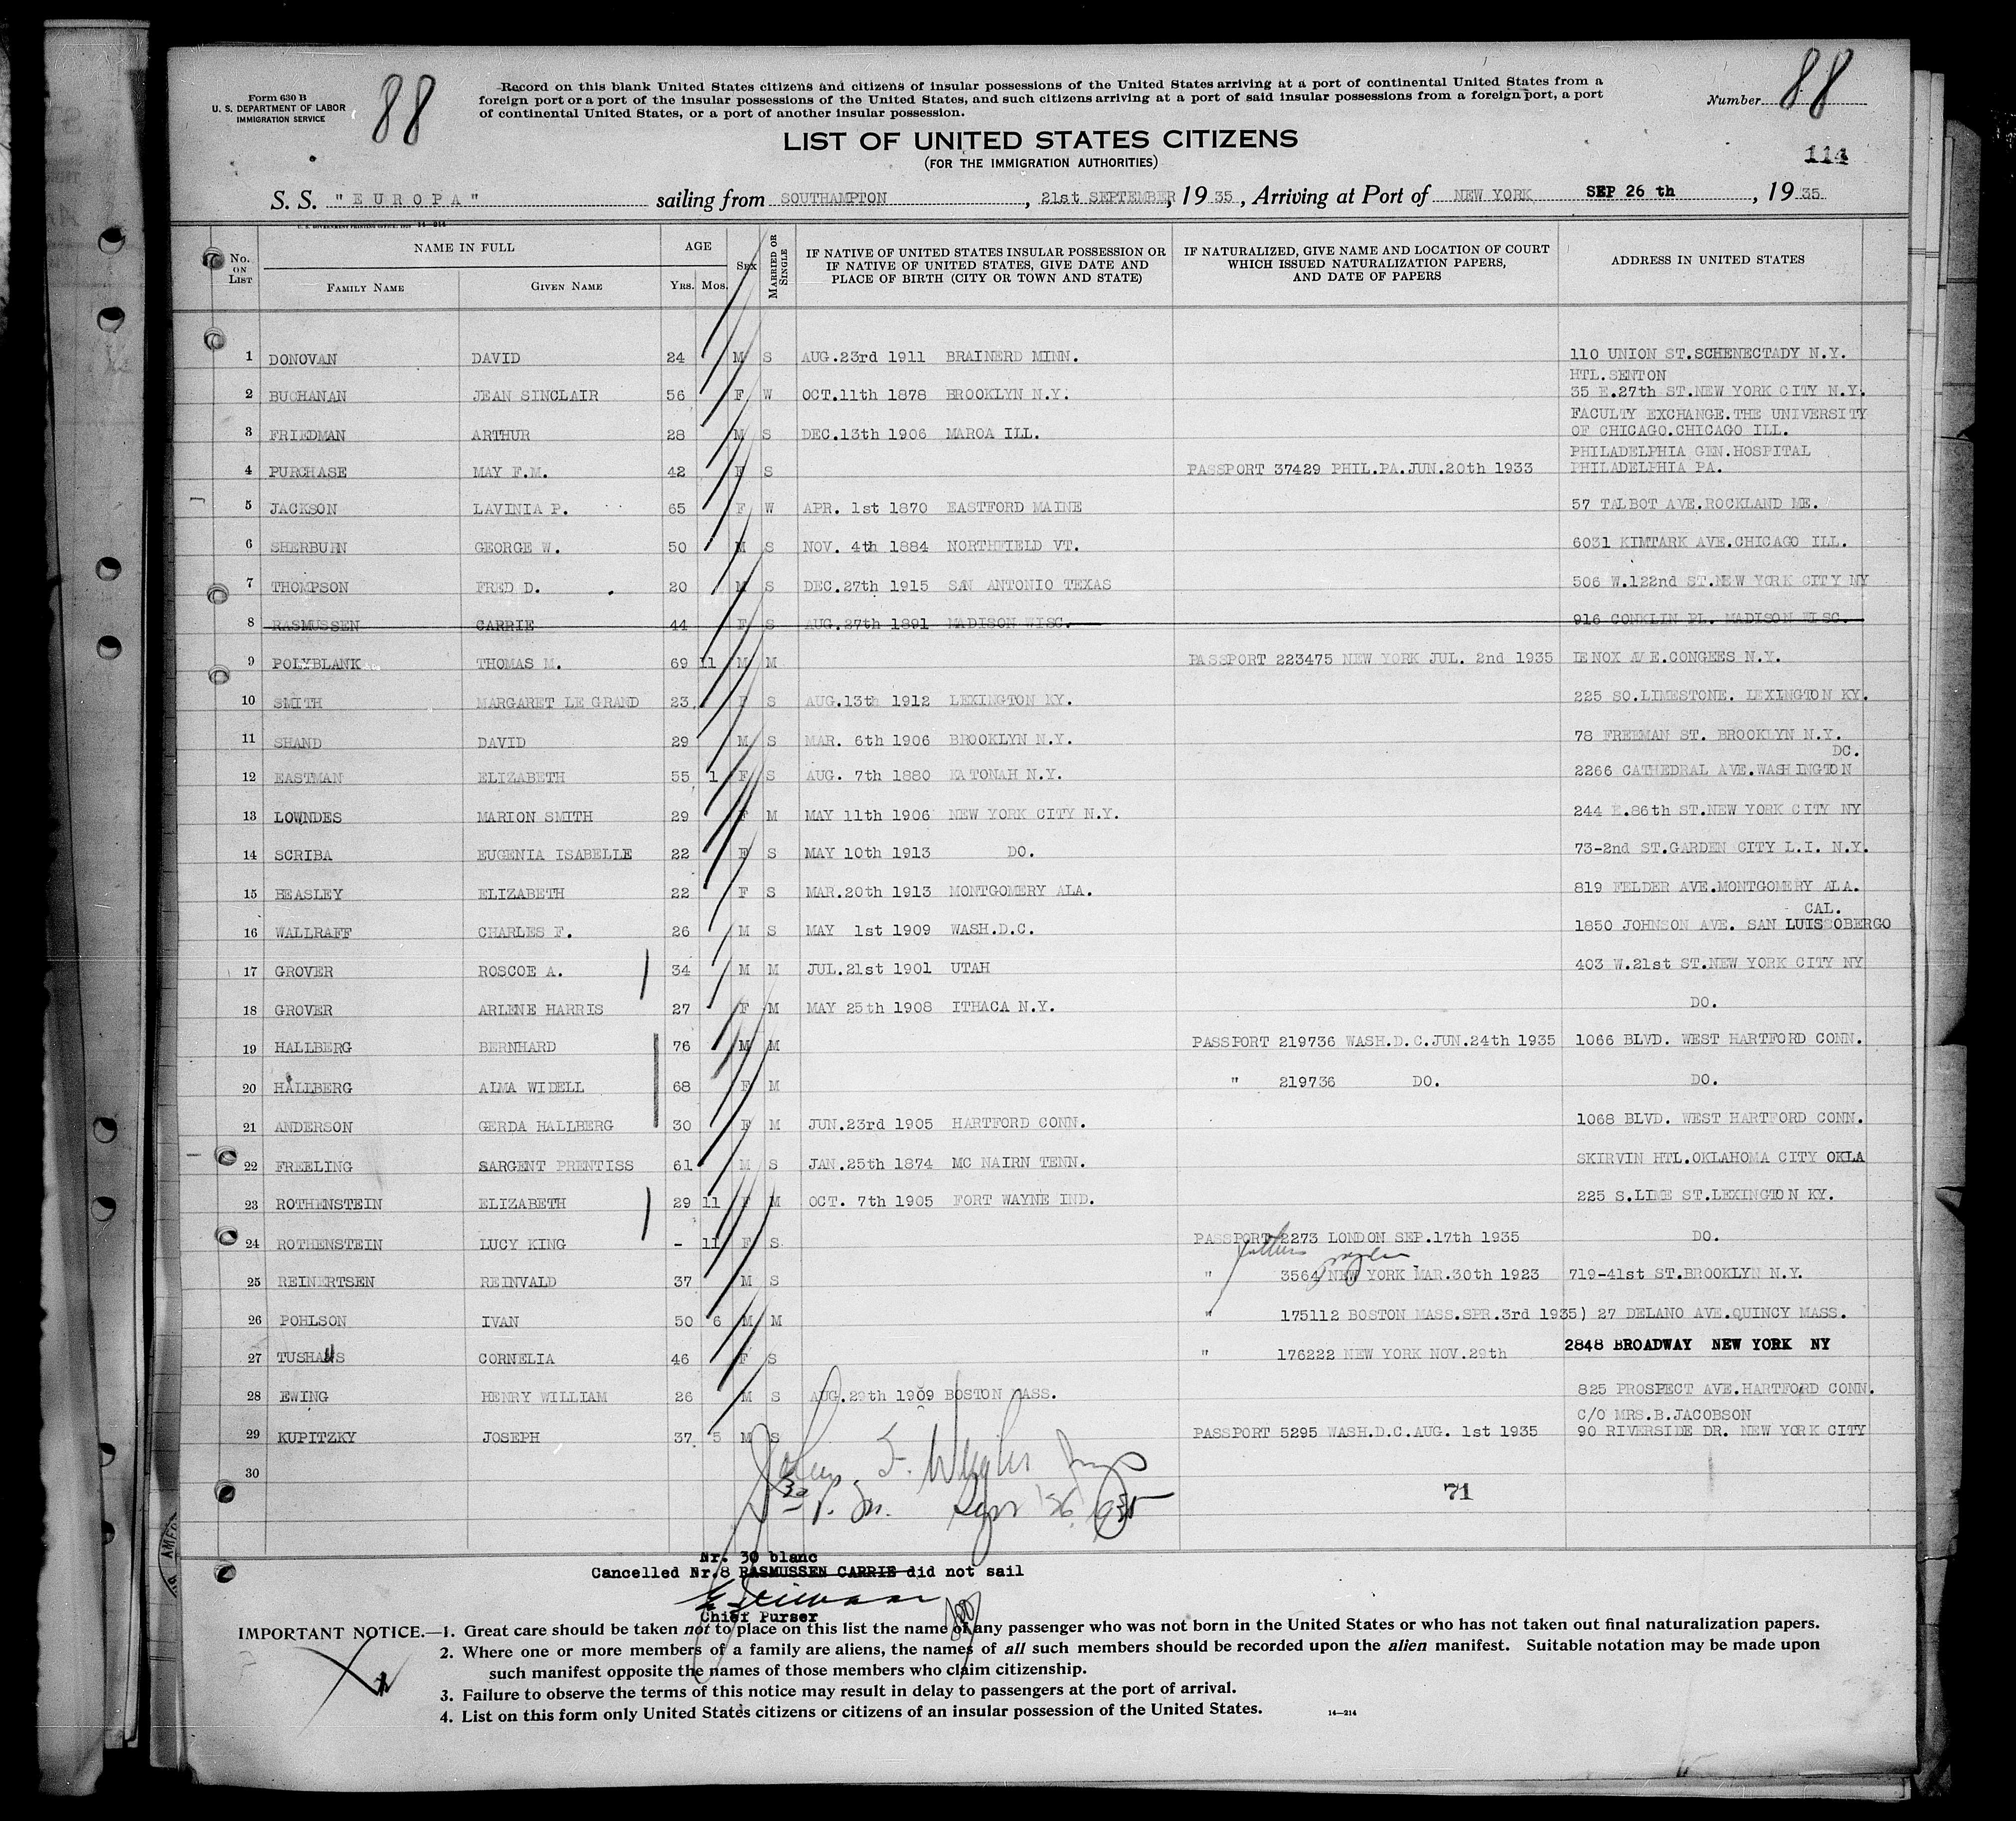 Form 630 B
U. S. DEPARTMENT OF LABOR
IMMIGRATION SERVICE
88
Record on this blank United States citizens and citizens of insular possessions of the United States arriving at a port of continental United States from a
foreign port or a port of the insular possessions of the United States, and such citizens arriving at a port of said insular possessions from a foreign port, a port
of continental United States, or a port of another insular possession.
Number 88
LIST OF UNITED STATES CITIZENS
(FOR THE IMMIGRATION AUTHORITIES)
114
S. S. "EUROPA" sailing from SOUTHAMPTON, 21st SEPTEMBER, 1935, Arriving at Port of NEW YORK SEP 26 th, 1935
U. S. GOVERNMENT PRINTING OFFICE: 14—214
No. ON LIST NAME IN FULL FAMILY NAME GIVEN NAME AGE YRS. MOS. SEX MARRIED OR SINGLE IF NATIVE OF UNITED STATES INSULAR POSSESSION OR IF NATIVE OF UNITED STATES, GIVE DATE AND PLACE OF BIRTH (CITY OR TOWN AND STATE) IF NATURALIZED, GIVE NAME AND LOCATION OF COURT WHICH ISSUED NATURALIZATION PAPERS, AND DATE OF PAPERS ADDRESS IN UNITED STATES
1 DONOVAN DAVID 24 M S AUG.23rd 1911 BRAINERD MINN. 110 UNION ST.SCHENECTADY N.Y.
HTL.SENTON
2 BUCHANAN JEAN SINCLAIR 56 F W OCT.11th 1878 BROOKLYN N.Y. 35 E.27th ST.NEW YORK CITY N.Y.
FACULTY EXCHANGE.THE UNIVERSITY
3 FRIEDMAN ARTHUR 28 M S DEC.13th 1906 MAROA ILL. OF CHICAGO.CHICAGO ILL.
PHILADELPHIA GEN.HOSPITAL
4 PURCHASE MAY F.M. 42 F S PASSPORT 37429 PHIL.PA.JUN.20th 1933 PHILADELPHIA PA.
5 JACKSON LAVINIA P. 65 F W APR. 1st 1870 EASTFORD MAINE 57 TALBOT AVE.ROCKLAND ME.
6 SHERBURN GEORGE W. 50 M S NOV. 4th 1884 NORTHFIELD VT. 6031 KIMTARK AVE.CHICAGO ILL.
7 THOMPSON FRED D. 20 M S DEC.27th 1915 SAN ANTONIO TEXAS 506 W.122nd ST.NEW YORK CITY NY
8 RASMUSSEN CARRIE 44 F S AUG.27th 1891 MADISON WISC. 916 CONKLIN PL. MADISON WISC.
9 POLYBLANK THOMAS M. 69 11 M M PASSPORT 223475 NEW YORK JUL. 2nd 1935 LENOX AVE.CONGEES N.Y.
10 SMITH MARGARET LE GRAND 23 F S AUG.13th 1912 LEXINGTON KY. 225 SO.LIMESTONE. LEXINGTON KY.
11 SHAND DAVID 29 M S MAR. 6th 1906 BROOKLYN N.Y. 78 FREEMAN ST. BROOKLYN N.Y.
DC.
12 EASTMAN ELIZABETH 55 1 F S AUG. 7th 1880 KATONAH N.Y. 2266 CATHEDRAL AVE.WASHINGTON
13 LOWNDES MARION SMITH 29 F M MAY 11th 1906 NEW YORK CITY N.Y. 244 E.86th ST.NEW YORK CITY NY
14 SCRIBA EUGENIA ISABELLE 22 F S MAY 10th 1913 DO. 73-2nd ST.GARDEN CITY L.I. N.Y.
15 BEASLEY ELIZABETH 22 F S MAR.20th 1913 MONTGOMERY ALA. 819 FELDER AVE.MONTGOMERY ALA.
CAL.
16 WALLRAFF CHARLES F. 26 M S MAY 1st 1909 WASH.D.C. 1850 JOHNSON AVE. SAN LUISSOBERGO
17 GROVER ROSCOE A. 34 M M JUL.21st 1901 UTAH 403 W.21st ST.NEW YORK CITY NY
18 GROVER ARLENE HARRIS 27 F M MAY 25th 1908 ITHACA N.Y. DO.
19 HALLBERG BERNHARD 76 M M PASSPORT 219736 WASH.D.C.JUN.24th 1935 1066 BLVD. WEST HARTFORD CONN.
20 HALLBERG ALMA WIDELL 68 F M " 219736 DO. DO.
21 ANDERSON GERDA HALLBERG 30 F M JUN.23rd 1905 HARTFORD CONN. 1068 BLVD. WEST HARTFORD CONN.
22 FREELING SARGENT PRENTISS 61 M S JAN.25th 1874 MC NAIRN TENN. SKIRVIN HTL.OKLAHOMA CITY OKLA
23 ROTHENSTEIN ELIZABETH 29 11 F M OCT. 7th 1905 FORT WAYNE IND. 225 S.LIME ST.LEXINGTON KY.
24 ROTHENSTEIN LUCY KING - 11 F S PASSPORT 2273 LONDON SEP.17th 1935 DO.
25 REINERTSEN REINVALD 37 M S " 3564 NEW YORK MAR.30th 1923 719-41st ST.BROOKLYN N.Y.
26 POHLSON IVAN 50 6 M M " 175112 BOSTON MASS.SPR.3rd 1935) 27 DELANO AVE.QUINCY MASS.
27 CORNELIA 46 F S " 176222 NEW YORK NOV.29th 2848 BROADWAY NEW YORK NY
28 EWING HENRY WILLIAM 26 M S AUG.29th 1909 BOSTON MASS. 825 PROSPECT AVE.HARTFORD CONN.
C/O MRS.B.JACOBSON
29 KUPITZKY JOSEPH 37 5 M S PASSPORT 5295 WASH.D.C.AUG. 1st 1935 90 RIVERSIDE DR. NEW YORK CITY
30
71
Nr. 30 blanc
Cancelled Nr.8 RASMUSSEN CARRIE did not sail
Chief Purser
IMPORTANT NOTICE.—1. Great care should be taken not to place on this list the name of any passenger who was not born in the United States or who has not taken out final naturalization papers.
2. Where one or more members of a family are aliens, the names of all such members should be recorded upon the alien manifest. Suitable notation may be made upon
such manifest opposite the names of those members who claim citizenship.
3. Failure to observe the terms of this notice may result in delay to passengers at the port of arrival.
4. List on this form only United States citizens or citizens of an insular possession of the United States.
14—214